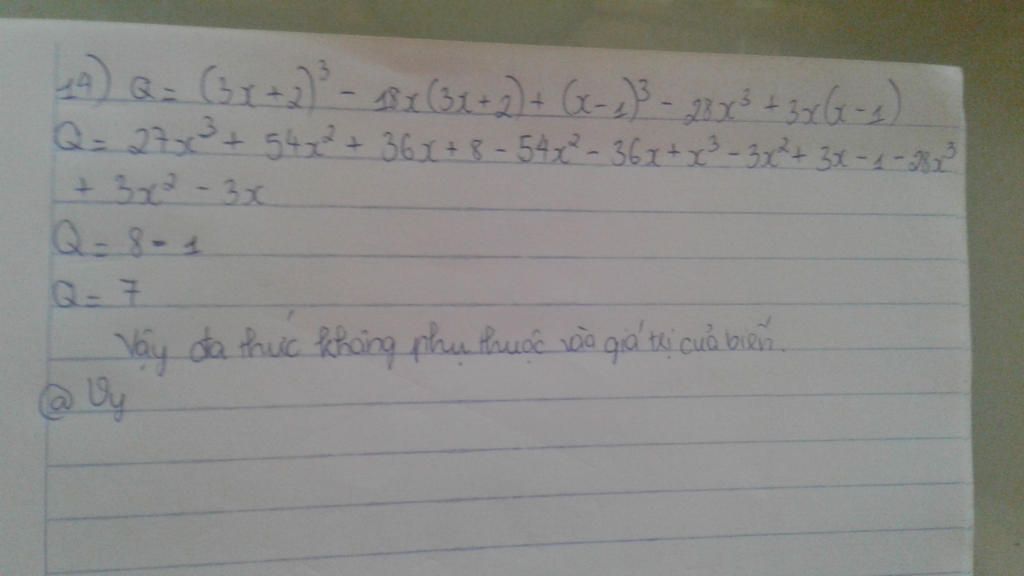 14) Q = (3x+2)³ - 18x(3x+2) + (x-1)³ - 28x³ + 3x(x-1)
Q = 27x³ + 54x² + 36x + 8 - 54x² - 36x + x³ - 3x² + 3x - 1 - 28x³
+ 3x² - 3x
Q = 8 - 1
Q = 7
Vậy đa thức không phụ thuộc vào giá trị của biến.
@ Vy